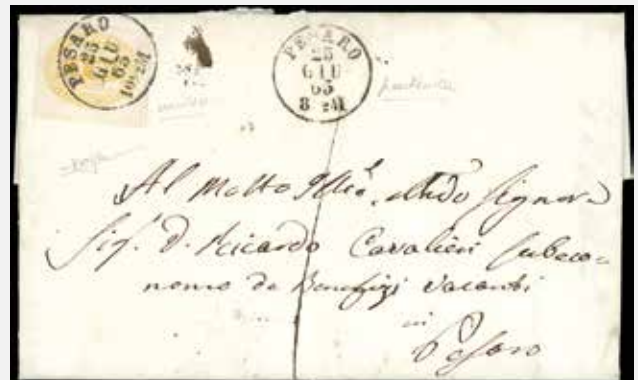 PESARO
25
GIU
63
10 M
PESARO
25
GIU
63
8 M
Al Molto Illre. e Rdo Signor
Sigr. D. Ricardo Cavalieri Subeco=
nomo de Benefizj Vacanti
in
Pesaro